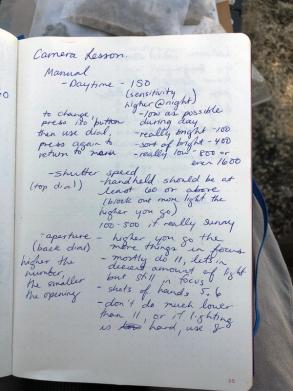 Camera Lesson.
Manual
- Daytime - ISO
(sensitivity
higher @ night)
to change,
press iso button
then use dial,
press again to
return to menu
- low as possible
during day
- really bright - 100
- sort of bright - 400
- really low - 800 or
even 1600
- Shutter speed
(top dial)
- handheld should be at
least 60 or above
(block out more light the
higher you go)
100-500 if really sunny
- aperture
(back dial)
higher the
number,
the smaller
the opening
- higher you go the
more things in focus
- mostly do 11, lets in
decent amount of light
but still in focus
- shots of hands 5.6
- don't do much lower
than 11, or if lighting
is hard, use 8